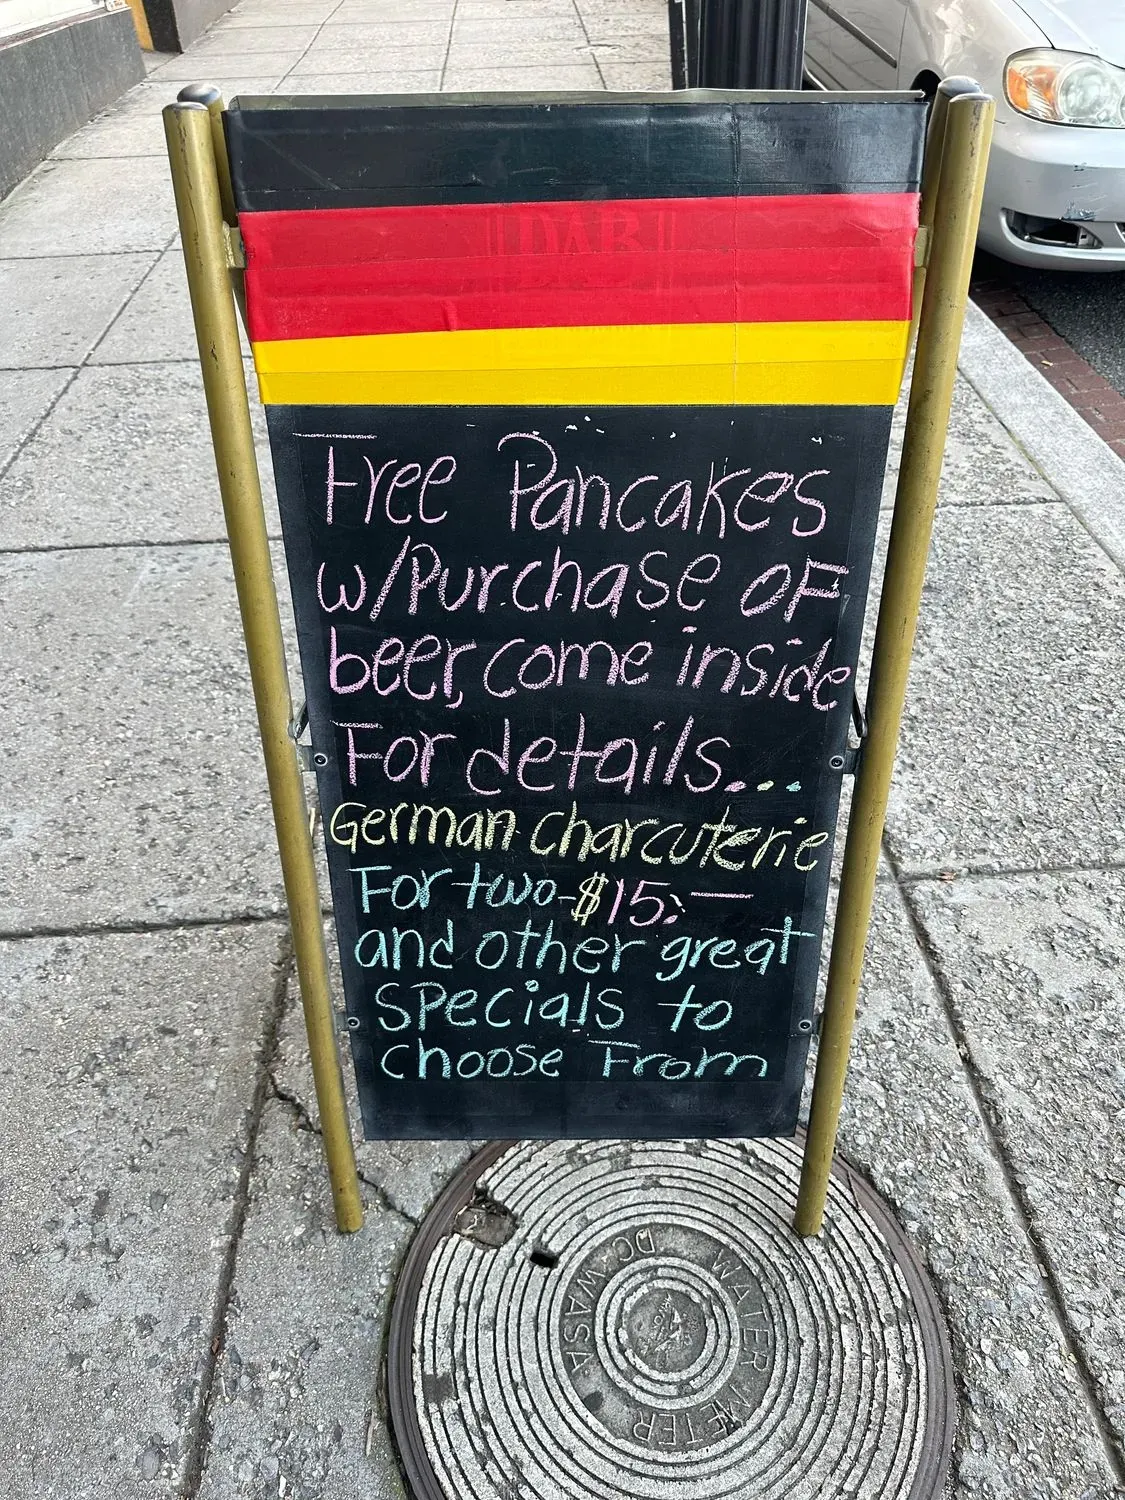 DAB
Free Pancakes
w/Purchase of
beer, come inside
For details...
German charcuterie
For two-$15.—
and other great
specials to
choose From
DC WASA
WATER METER